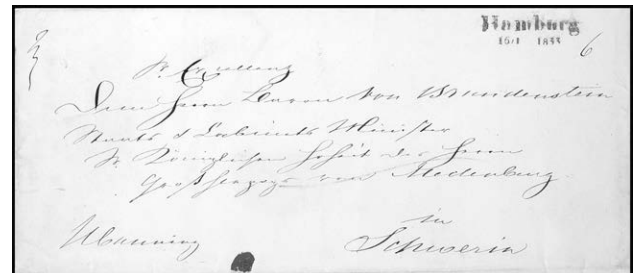 Hamburg
15/1 1855
6
Sr. Excellenz
Dem Herrn Baron von Brandenstein
Staats & Cabinets Minister
Sr. Königlichen Hoheit des Herrn
Großherzogs von Meckenburg
in
Schwerin